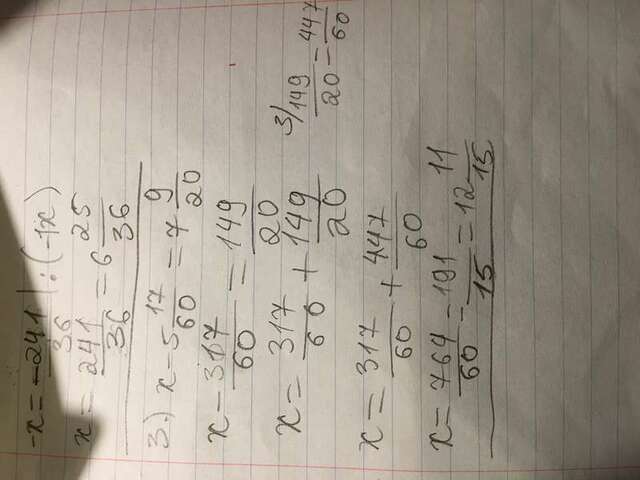 -x = -241/36 | : (-1x)
x = 241/36 = 6 25/36
3.) x - 5 17/60 = 7 9/20
x - 317/60 = 149/20
x = 317/60 + 149/20
3/ 149/20 = 447/60
x = 317/60 + 447/60
x = 764/60 = 191/15 = 12 11/15